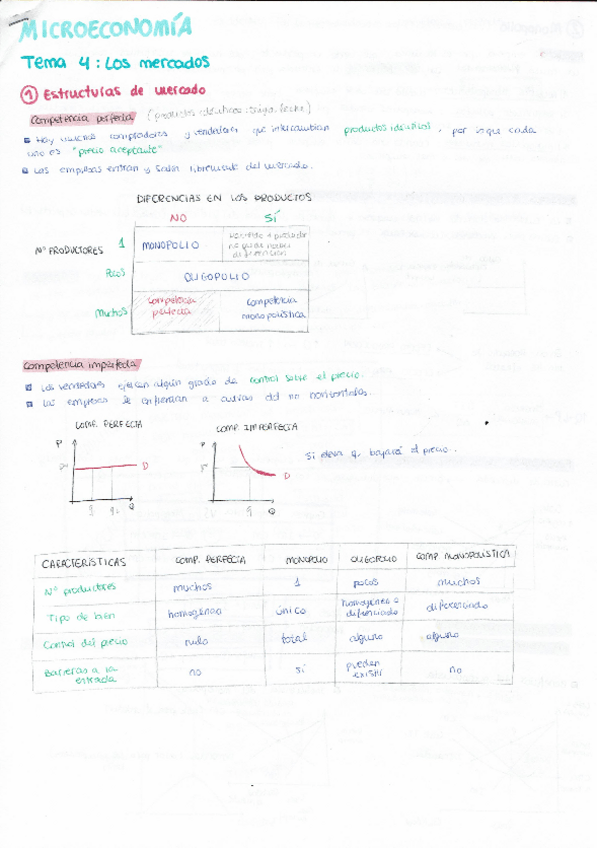 MICROECONOMÍA
Tema 4: Los mercados
① Estructuras de mercado
Competencia perfecta (productos idénticos: trigo, leche)
Hay muchos compradores y vendedores que intercambian productos idénticos, por lo que cada
uno es "precio aceptante"
Las empresas entran y salen libremente del mercado.
DIFERENCIAS EN LOS PRODUCTOS
NO SÍ
Nº PRODUCTORES 1 MONOPOLIO
no puede haber
diferenciación
Pocos OLIGOPOLIO
Muchos Competencia perfecta Competencia monopolística
Competencia imperfecta
Los vendedores ejercen algún grado de control sobre el precio.
Las empresas se enfrentan a curvas del no horizontales.
COMP. PERFECTA COMP. IMPERFECTA
Si eleva q, bajará el precio.
P D Q
P D Q
CARACTERÍSTICAS COMP. PERFECTA MONOPOLIO OLIGOPOLIO COMP. MONOPOLÍSTICA
Nº productores muchos 1 pocos muchos
Tipo de bien homogéneo único homogéneo o diferenciado diferenciado
Control del precio nulo total alguno alguno
Barreras a la entrada no sí pueden existir no